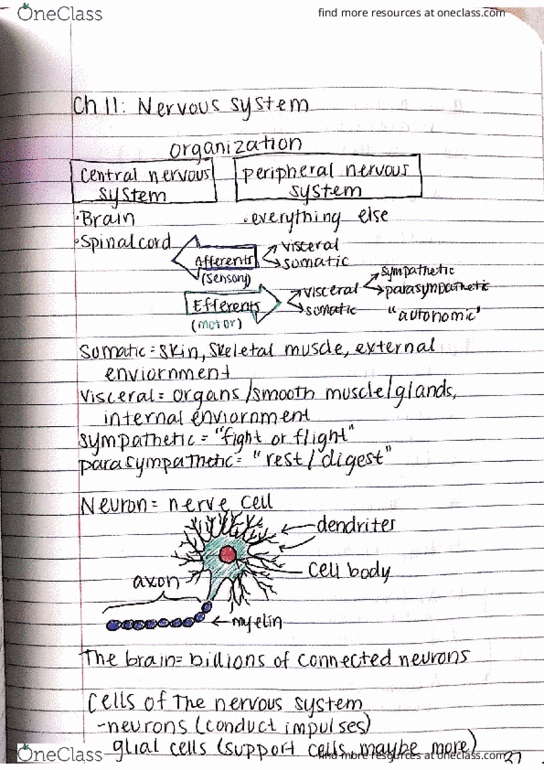 OneClass
find more resources at oneclass.com
Ch 11: Nervous system
organization
central nervous system
peripheral nervous system
·Brain
·everything else
·Spinal cord
Afferents
(sensory)
visceral
somatic
Efferents
(motor)
visceral
somatic
sympathetic
parasympathetic
"autonomic"
Somatic = skin, skeletal muscle, external
enviornment
visceral = organs/smooth muscle/glands,
internal enviornment
sympathetic = "fight or flight"
parasympathetic = "rest/digest"
Neuron = nerve cell
dendrites
cell body
axon
myelin
The brain = billions of connected neurons
Cells of the nervous system
-neurons (conduct impulses)
glial cells (support cells, maybe more)
OneClass
find more resources at oneclass.com